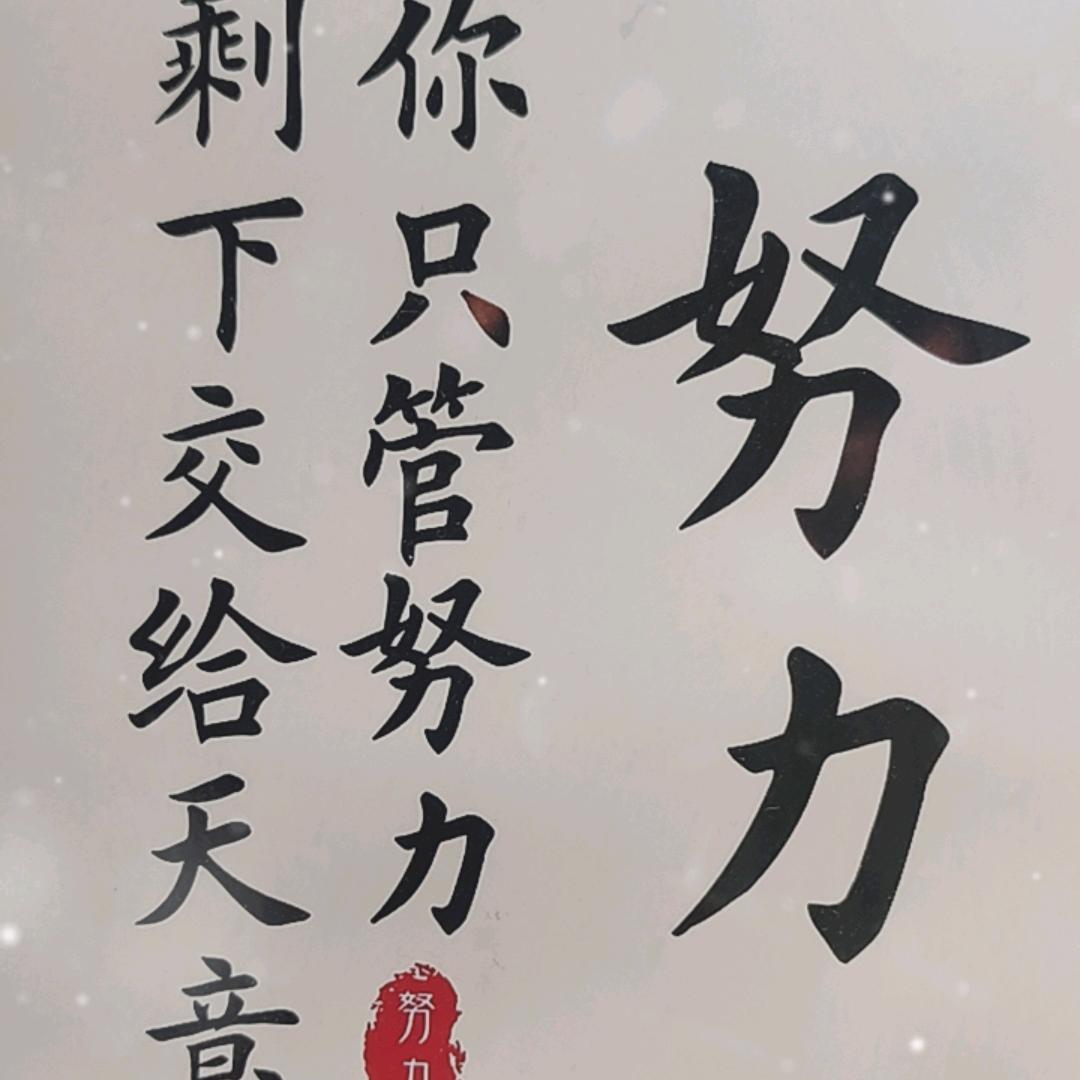 努力
你只管努力
剩下交给天意
努力